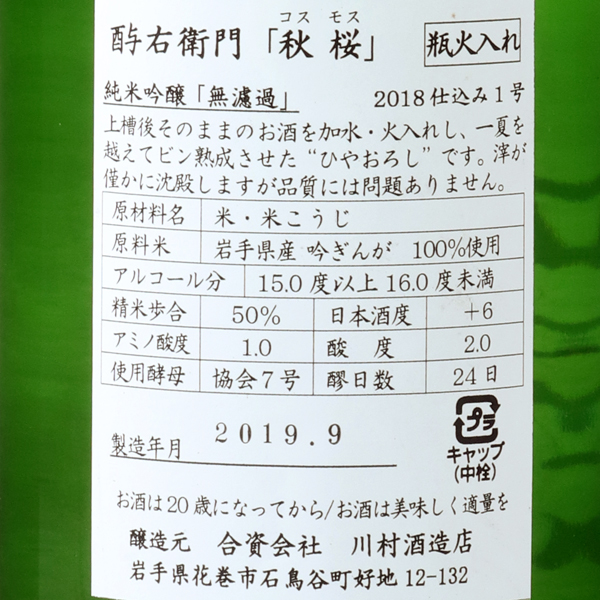 コスモス
酉与右衛門「秋桜」 瓶火入れ
純米吟醸「無濾過」 2018仕込み1号
上槽後そのままのお酒を加水・火入れし、一夏を
越えてビン熟成させた“ひやおろし”です。滓が
僅かに沈殿しますが品質には問題ありません。
原材料名 米・米こうじ
原料米 岩手県産 吟ぎんが 100%使用
アルコール分 15.0度以上16.0度未満
精米歩合 50% 日本酒度 +6
アミノ酸度 1.0 酸度 2.0
使用酵母 協会7号 醪日数 24日
製造年月 2019.9
プラ
キャップ
(中栓)
お酒は20歳になってから/お酒は美味しく適量を
醸造元 合資会社 川村酒造店
岩手県花巻市石鳥谷町好地12-132